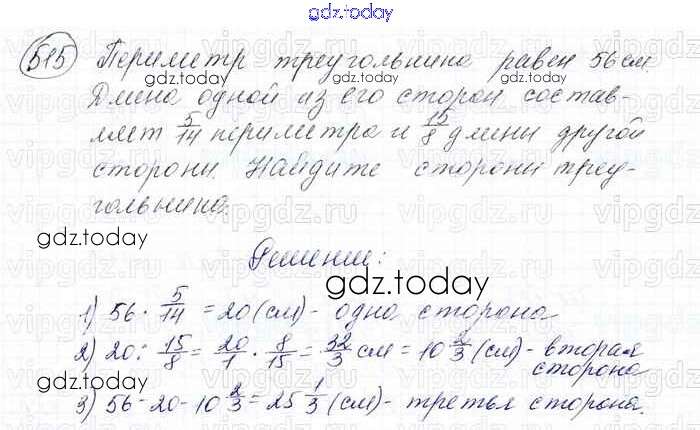 gdz.today
515 Периметр треугольника равен 56 см.
gdz.today gdz.today
Длина одной из его сторон состав-
ляет 5/14 периметра и 15/8 длины другой
стороны. Найдите стороны треу-
гольника.
gdz.today
Решение:
gdz.today
1) 56 · 5/14 = 20 (см) - одна сторона
2) 20 : 15/8 = 20/1 · 8/15 = 32/3 см = 10 2/3 (см) - вторая
сторона
gdz.today gdz.today
3) 56 - 20 - 10 2/3 = 25 1/3 (см) - третья сторона.